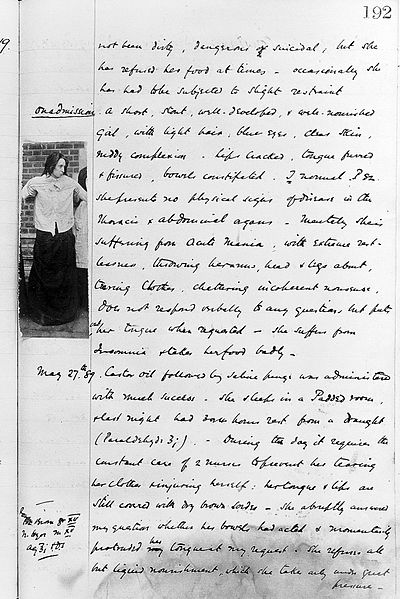 192
not been dirty, dangerous or suicidal, but she
has refused her food at times - occasionally she
has had to be subjected to slight restraint
on admission
A short, stout, well-developed, & well-nourished
Girl, with light hair, blue eyes, clear skin,
ruddy complexion. Lips cracked, tongue furred
& fissured, bowels constipated. normal.
she presents no physical signs of disease in the
Thoracic & abdominal organs - Mentally she is
suffering from Acute Mania, with extreme rest-
lessness, throwing her arms, head & legs about,
tearing clothes, chattering incoherent nonsense,
Does not respond verbally to any questions, but puts
out her tongue when requested - she suffers from
Insomnia & takes her food badly -
May 27th 89. Castor oil followed by saline purge was administered
with much success. She sleeps in a Padded room,
& last night had hours rest from a Draught
(Paraldehyde ʒj). - During the day it requires the
constant care of 2 nurses to prevent her tearing
her clothes & injuring herself: her tongue & lips are
still covered with dry brown sordes - She abruptly answered
my question whether her bowels had acted & momentarily
protruded her tongue at my request. She refuses all
but liquid nourishment, which she takes only under great
pressure -